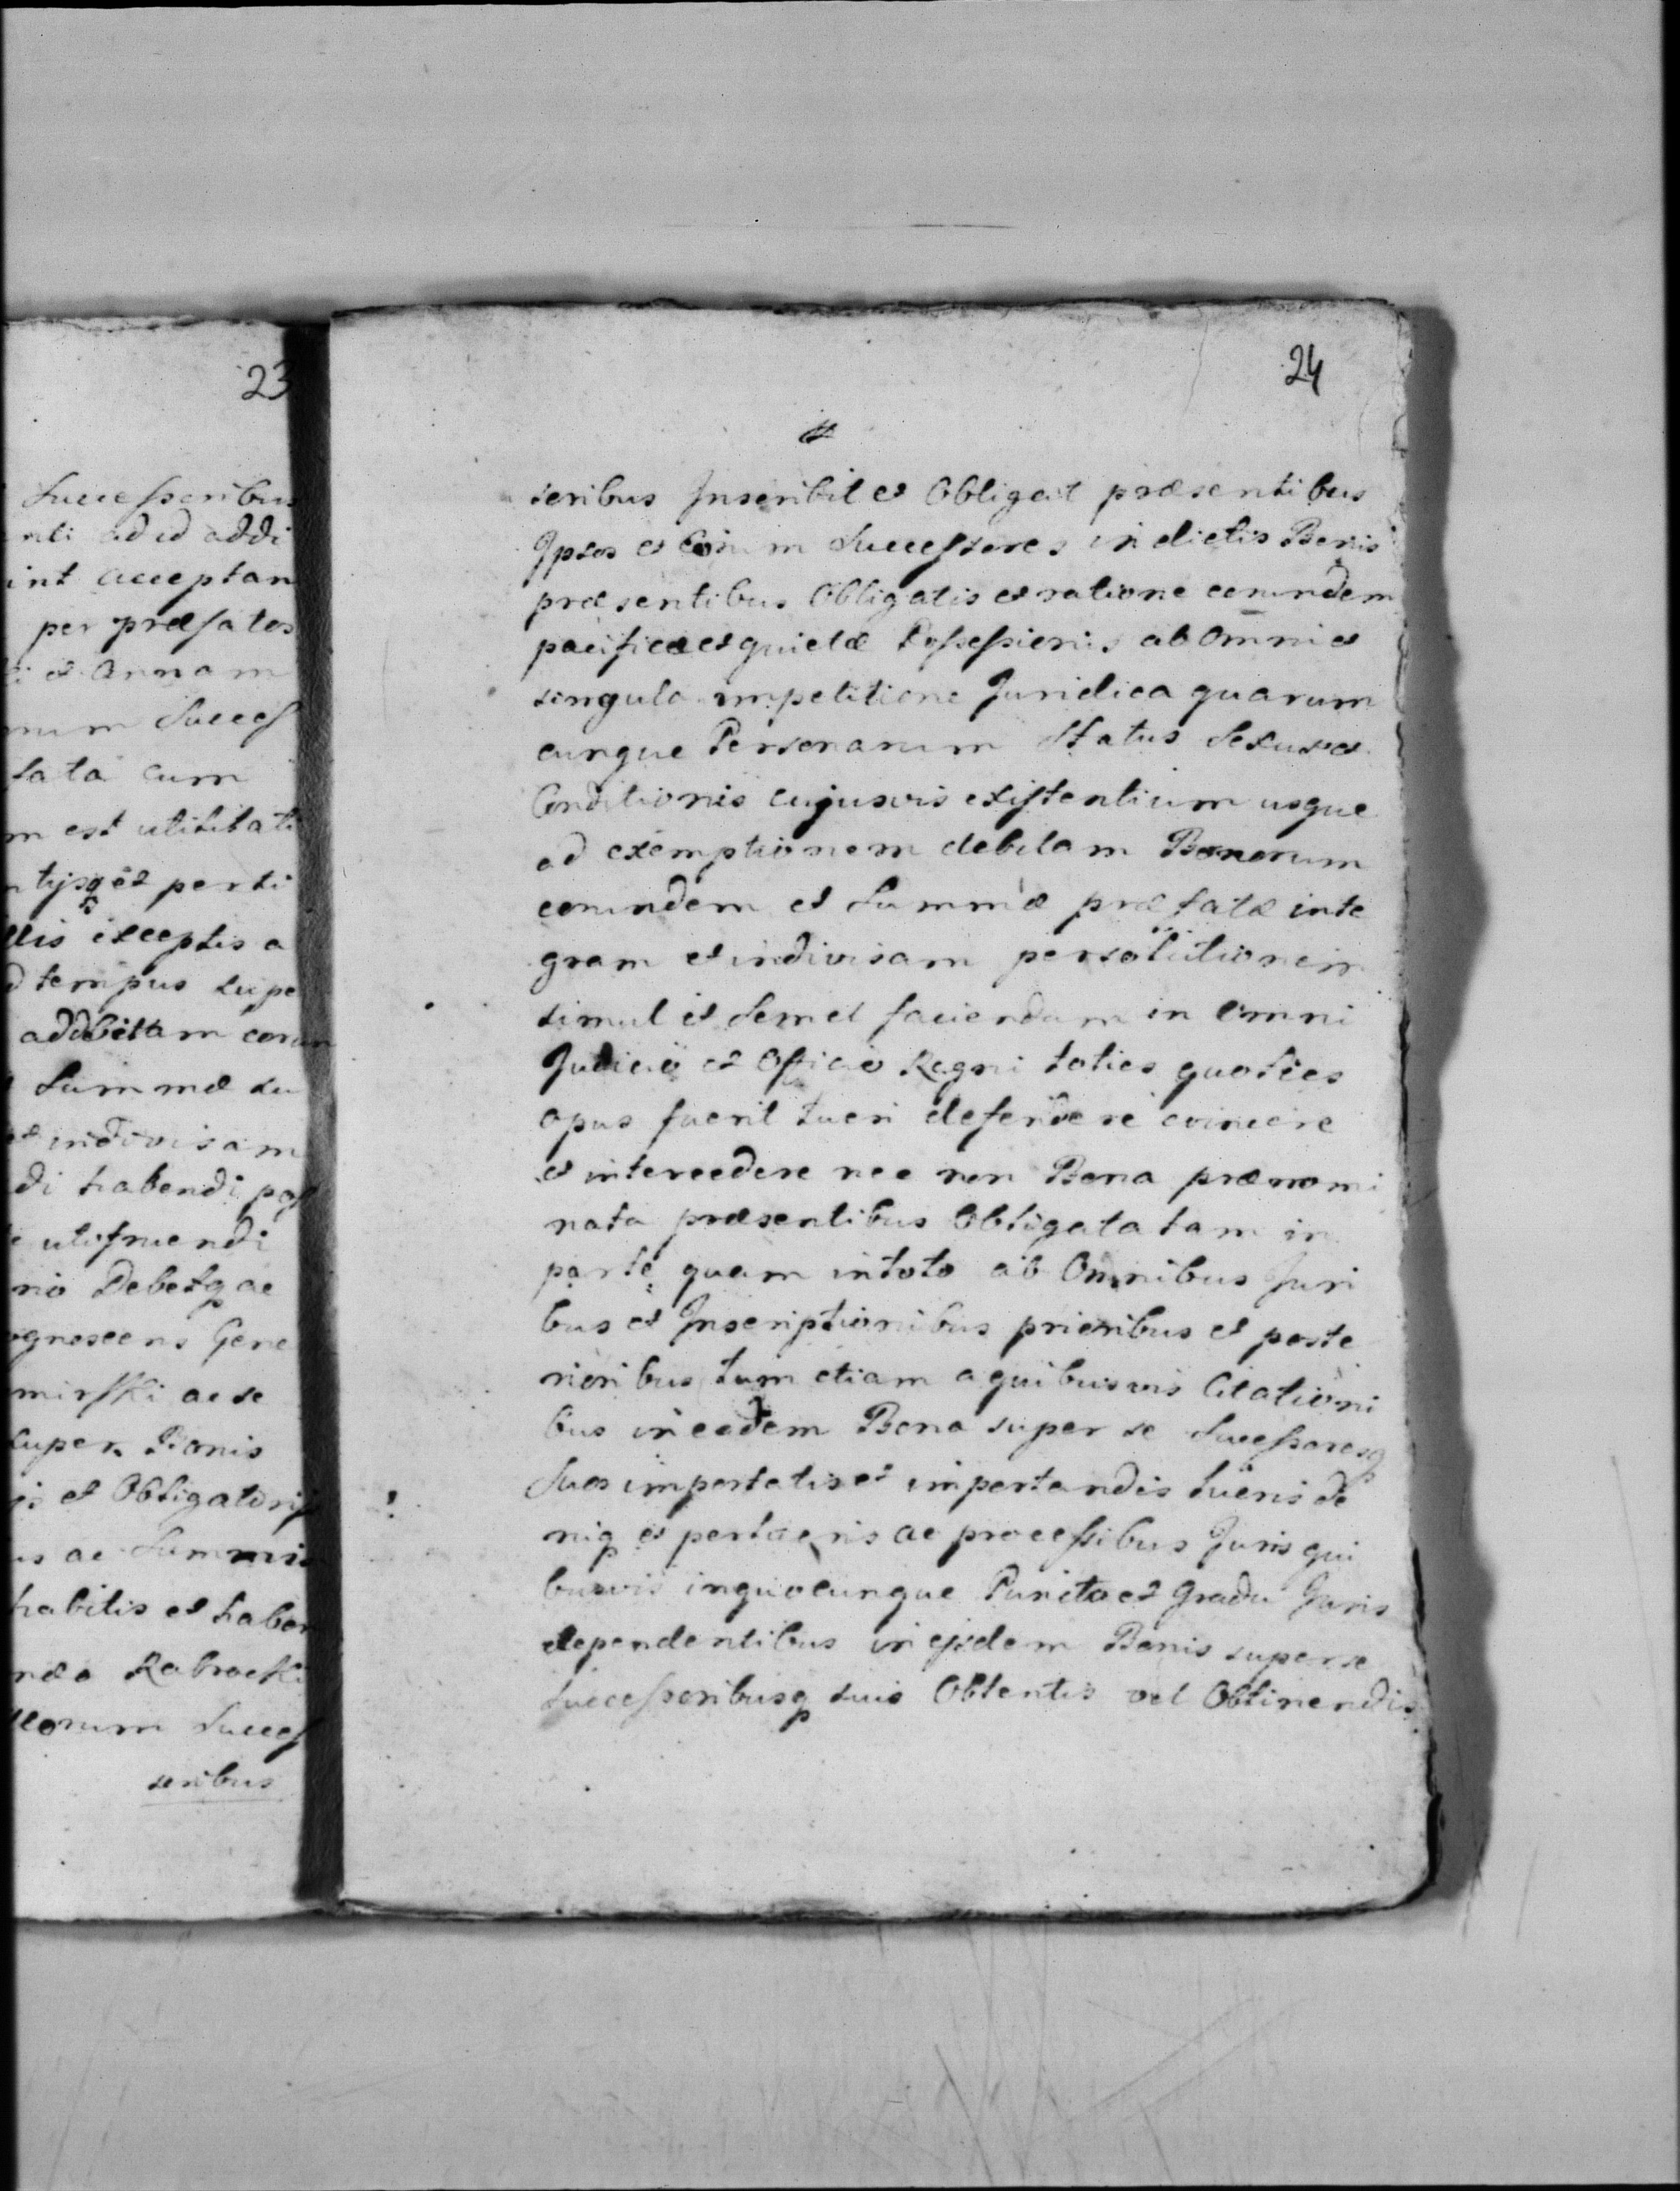 23
Successoribus
nti ad id addi
int acceptan
per præfatos
et Annam
num Succes
lata cum
m est utilitati
ntijsq et perti
llis exceptis a
d tempus supe
ad debitam corun
Summæ su
et indivisam
di habendi pos
utifruendi
rio Debetq ac
ognoscens Gene
mirski ac se
super Bonis
is et Obligatorijs
is ac Summis
habitis et haben
llorum Succes
soribus
24
soribus Inscribit et Obligat præsentibus
Ipsos et Eorum Successores in dictis Bonis
præsentibus Obligatis et ratione eorundem
pacificæ et quietæ Possessionis ab omni et
singula impetitione Juridica quarum
cunque Personarum Status Sexus et
Conditionis cujusvis existentium usque
ad exemptionem debitam Bonorum
eorundem et Summæ præfatæ inte
gram et indivisam persolutionem
simul et semel faciendam in omni
Judicio et Officio Regni toties quoties
opus fuerit tueri defendere evincere
et intercedere nec non Bona prænomi
nata præsentibus Obligata tam in
parte quam in toto ab Omnibus Juri
bus et Inscriptionibus prioribus et poste
rioribus tum etiam a quibusvis Citationi
bus in eadem Bona super se Successoresq
suos importatis et importandis lucris de
niq et perlucris ac processibus Juris qui
busvis in quocunque Puncto et Gradu Juris
dependentibus in ejsdem Bonis super se
Successoribusq suis Obtentis vel Obtinendis